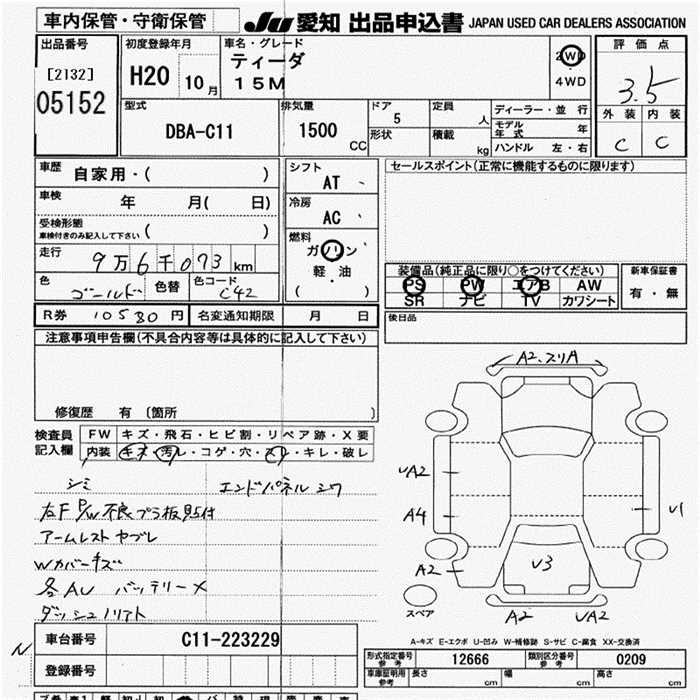 車内保管・守衛保管
JU 愛知 出品申込書 JAPAN USED CAR DEALERS ASSOCIATION
出品番号
[2132]
05152
初度登録年月
H20 10月
車名・グレード
ティーダ
15M
2WD
・
4WD
評価点
3.5
外装 内装
C C
型式
DBA-C11
排気量
1500 CC
ドア
5
形状
定員
人
積載
kg
ディーラー・並行
モデル年式 年
ハンドル 左・右
車歴
自家用・( )
車検
年 月( 日)
受検形態
車検付きのみ記入して下さい ( )
走行
9万6千073km
色
ゴールド
色替
色コード
C42
シフト
AT
冷房
AC
燃料
ガソリン
軽・油
( )
セールスポイント(正常に機能するものに限ります)
装備品(純正品に限り○をつけてください)
PS PW エアB AW
SR ナビ TV カワシート
新車保証書
有・無
後日品
R券 10580円
名変通知期限 月 日
注意事項申告欄(不具合内容等は具体的に記入して下さい)
修復歴 有〔箇所 〕
検査員記入欄
FW キズ・飛石・ヒビ割・リペア跡・X要
内装 キズ・汚レ・コゲ・穴・スレ・キレ・破レ
シミ エンドパネルシワ
左F P/W不良 プラ板貼付
アームレスト ヤブレ
Wカバーキズ
バッテリー×
A2.スリA
UA2
A4
A2
U1
U3
A2
UA2
スペア
A-キズ E-エクボ U-凹み W-補修跡 S-サビ C-腐食 XX-交換済
N
車台番号 C11-223229
登録番号
形式指定番号 参考 12666
類別区分番号 参考 0209
車庫証明用 参考 長さ cm 幅 cm 高さ cm